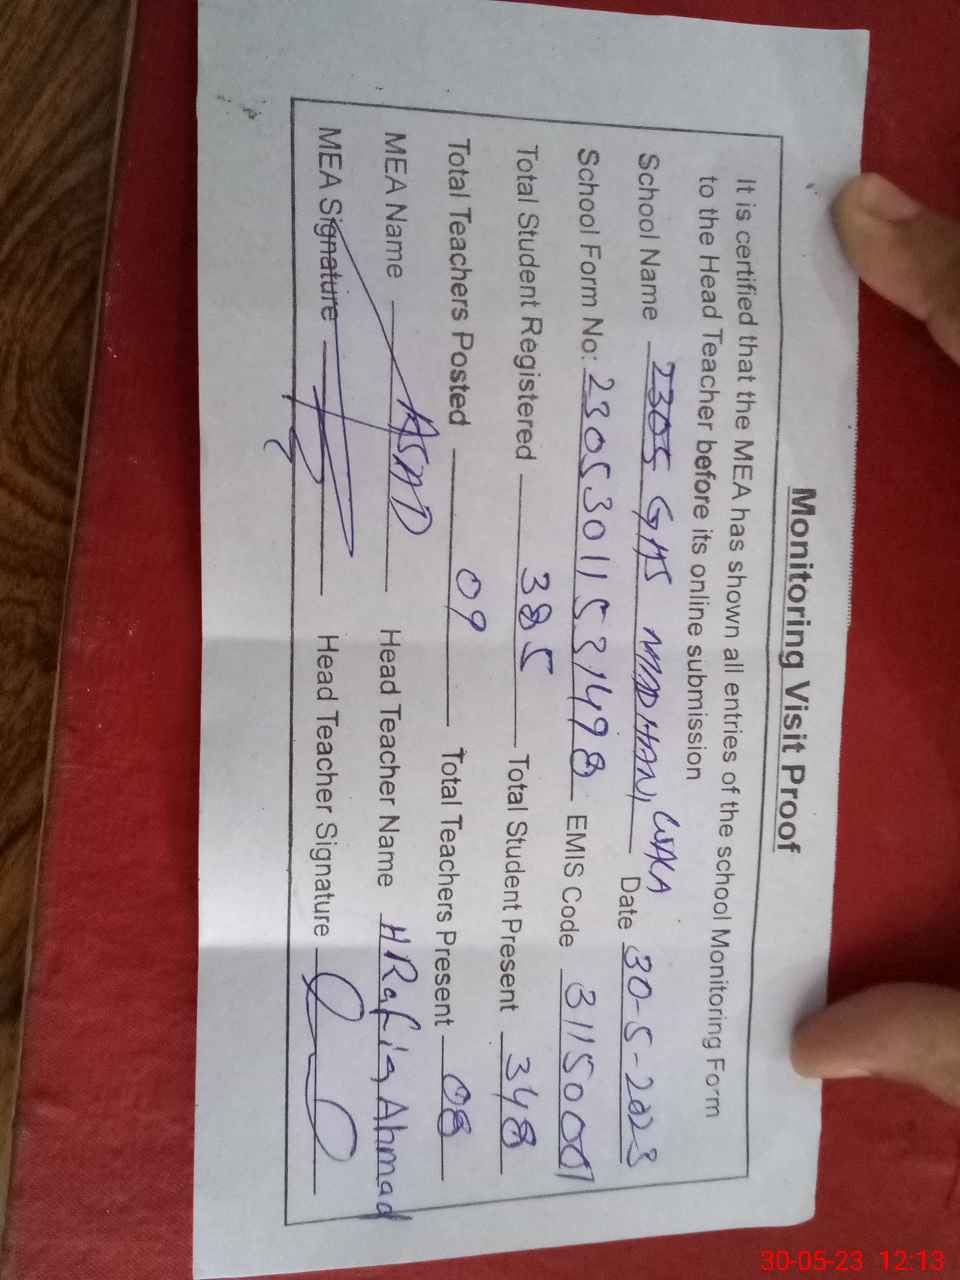 Monitoring Visit Proof
It is certified that the MEA has shown all entries of the school Monitoring Form
to the Head Teacher before its online submission
School Name 2305 GHS Date 30-5-2023
School Form No: 23053011531498 EMIS Code 31150007
Total Student Registered 385 Total Student Present 348
Total Teachers Posted 09 Total Teachers Present 08
MEA Name ASAD Head Teacher Name H Rafiq Ahmad
MEA Signature Head Teacher Signature
30-05-23 12:13